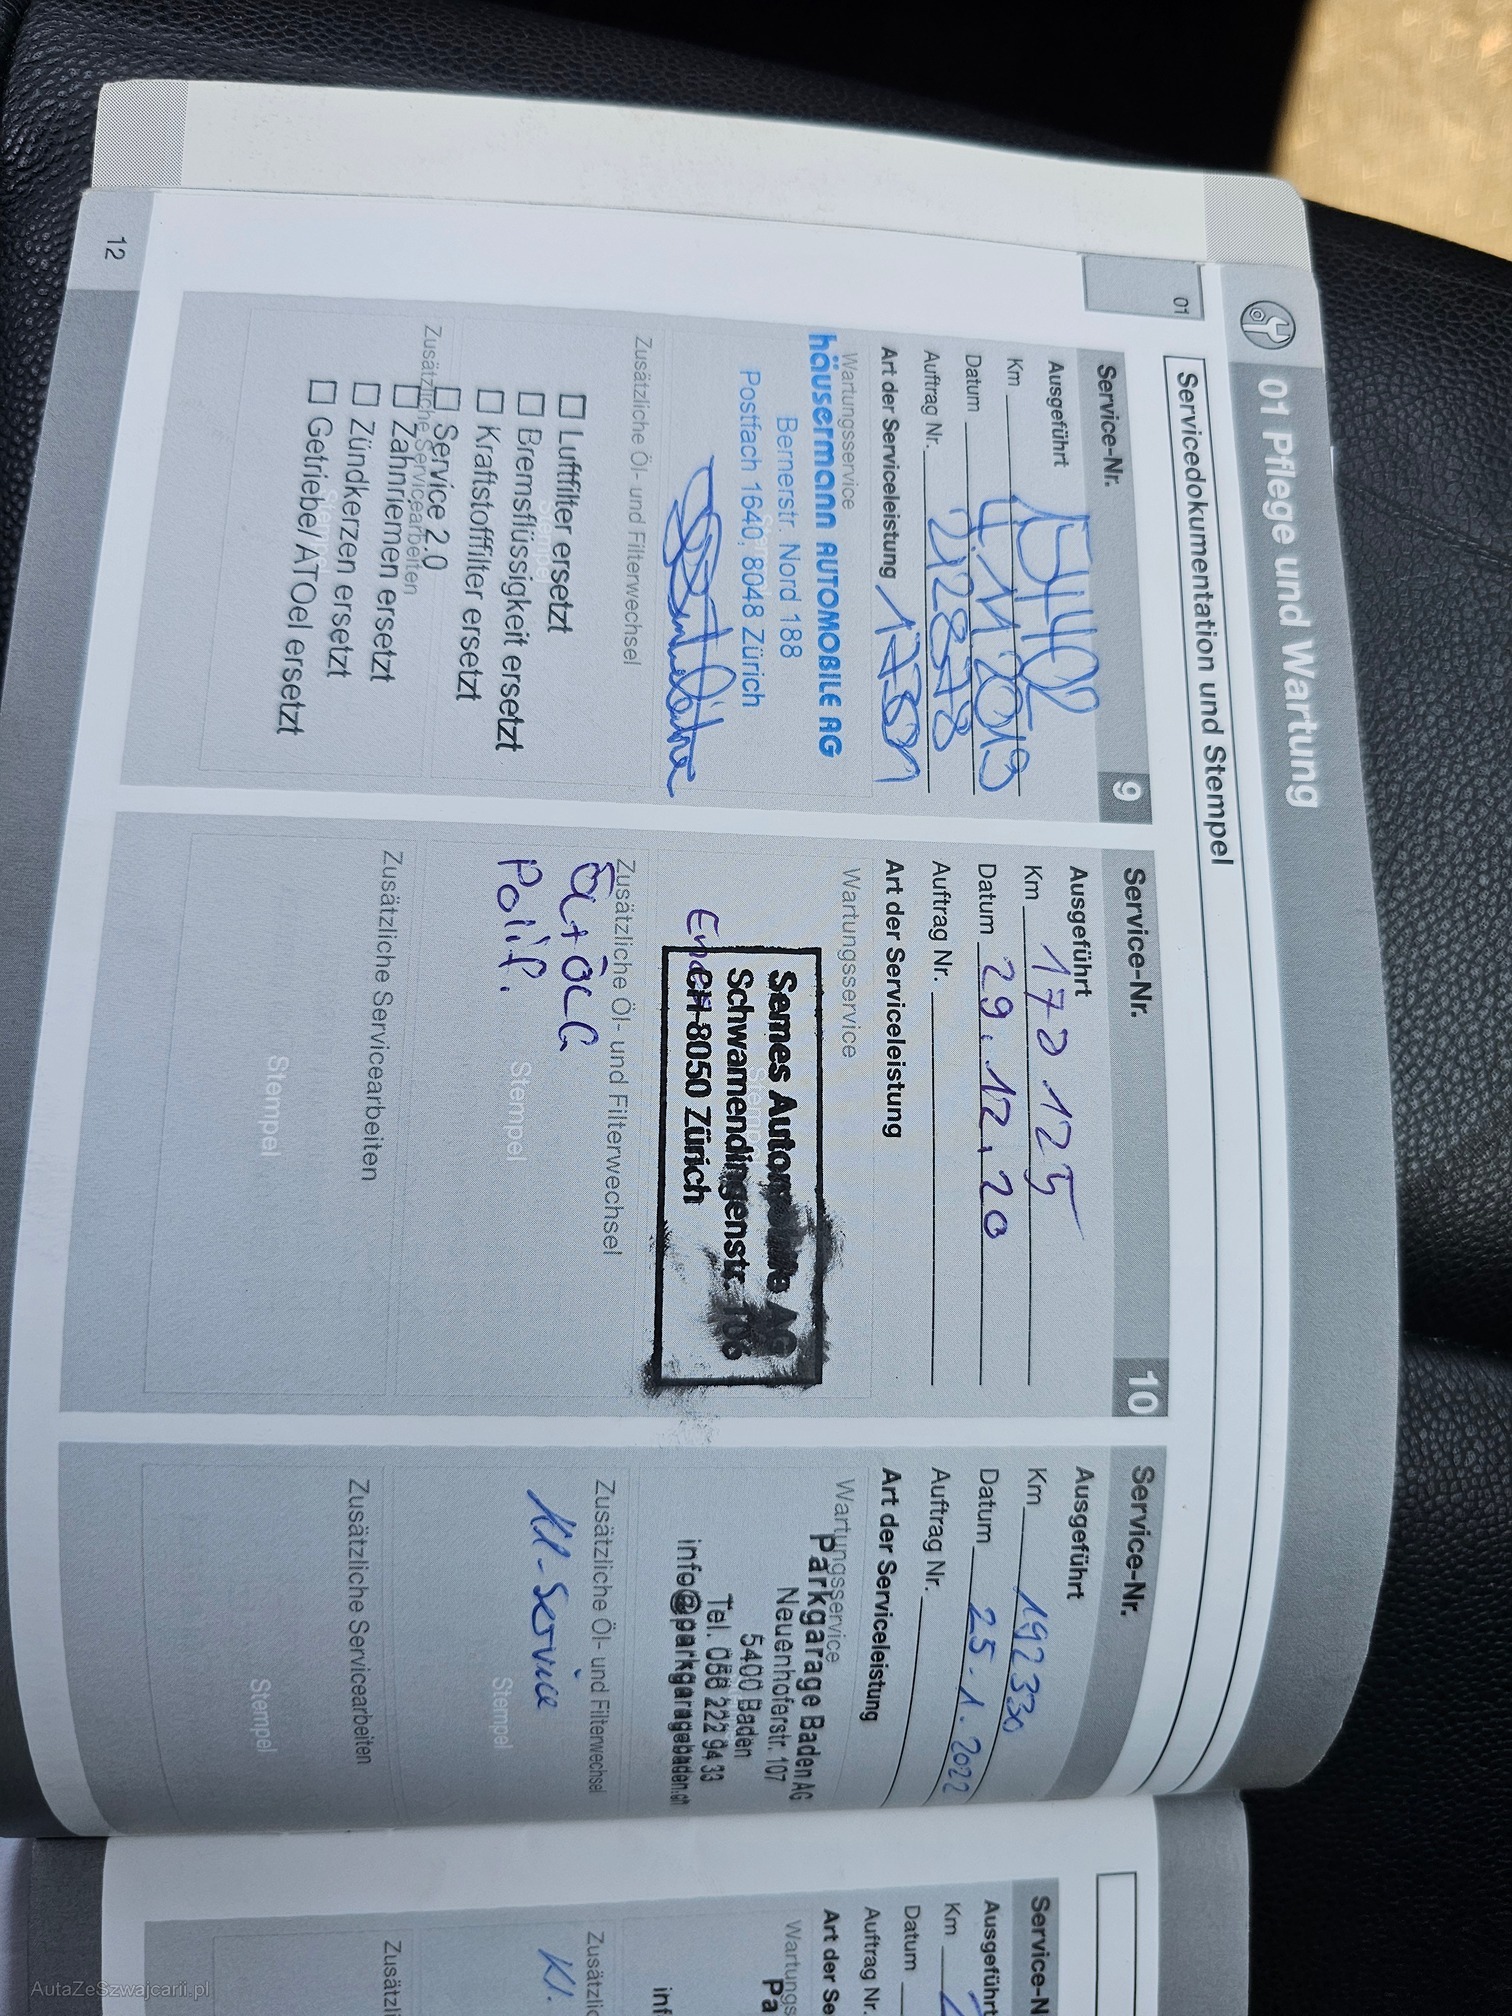 01 Pflege und Wartung
Servicedokumentation und Stempel
01
Service-Nr. 9
Ausgeführt
Km
Datum 4.11.2019
Auftrag Nr. 2128578
Art der Serviceleistung
Wartungsservice
häusermann AUTOMOBILE AG
Bernerstr. Nord 188
Postfach 1640, 8048 Zürich
Zusätzliche Öl- und Filterwechsel
☐ Luftfilter ersetzt
☐ Bremsflüssigkeit ersetzt
☐ Kraftstofffilter ersetzt
☐ Service 2.0
Zusätzliche Servicearbeiten
☐ Zahnriemen ersetzt
☐ Zündkerzen ersetzt
☐ Getriebe/ATOel ersetzt
Service-Nr. 10
Ausgeführt
Km 170 125
Datum 29.12.20
Auftrag Nr.
Art der Serviceleistung
Wartungsservice
Semes Automobile AG
Schwamendingenstr. 106
CH-8050 Zürich
Zusätzliche Öl- und Filterwechsel
Stempel
Zusätzliche Servicearbeiten
Stempel
Service-Nr.
Ausgeführt
Km 192330
Datum 25.1.2022
Auftrag Nr.
Art der Serviceleistung
Wartungsservice
Parkgarage Baden AG
Neuenhoferstr. 107
5400 Baden
Tel. 056 222 94 33
info@parkgaragebaden.ch
Zusätzliche Öl- und Filterwechsel
Kl-Service
Stempel
Zusätzliche Servicearbeiten
Stempel
12
Service-N
Ausgeführt
Km
Datum
Auftrag Nr.
Art der Se
Wartungs
Pa
inf
Zusätzlic
Kl.
Zusätzl
AutaZeSzwajcarii.pl